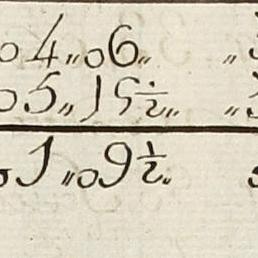 04„06„
05„15½„
01„09½„